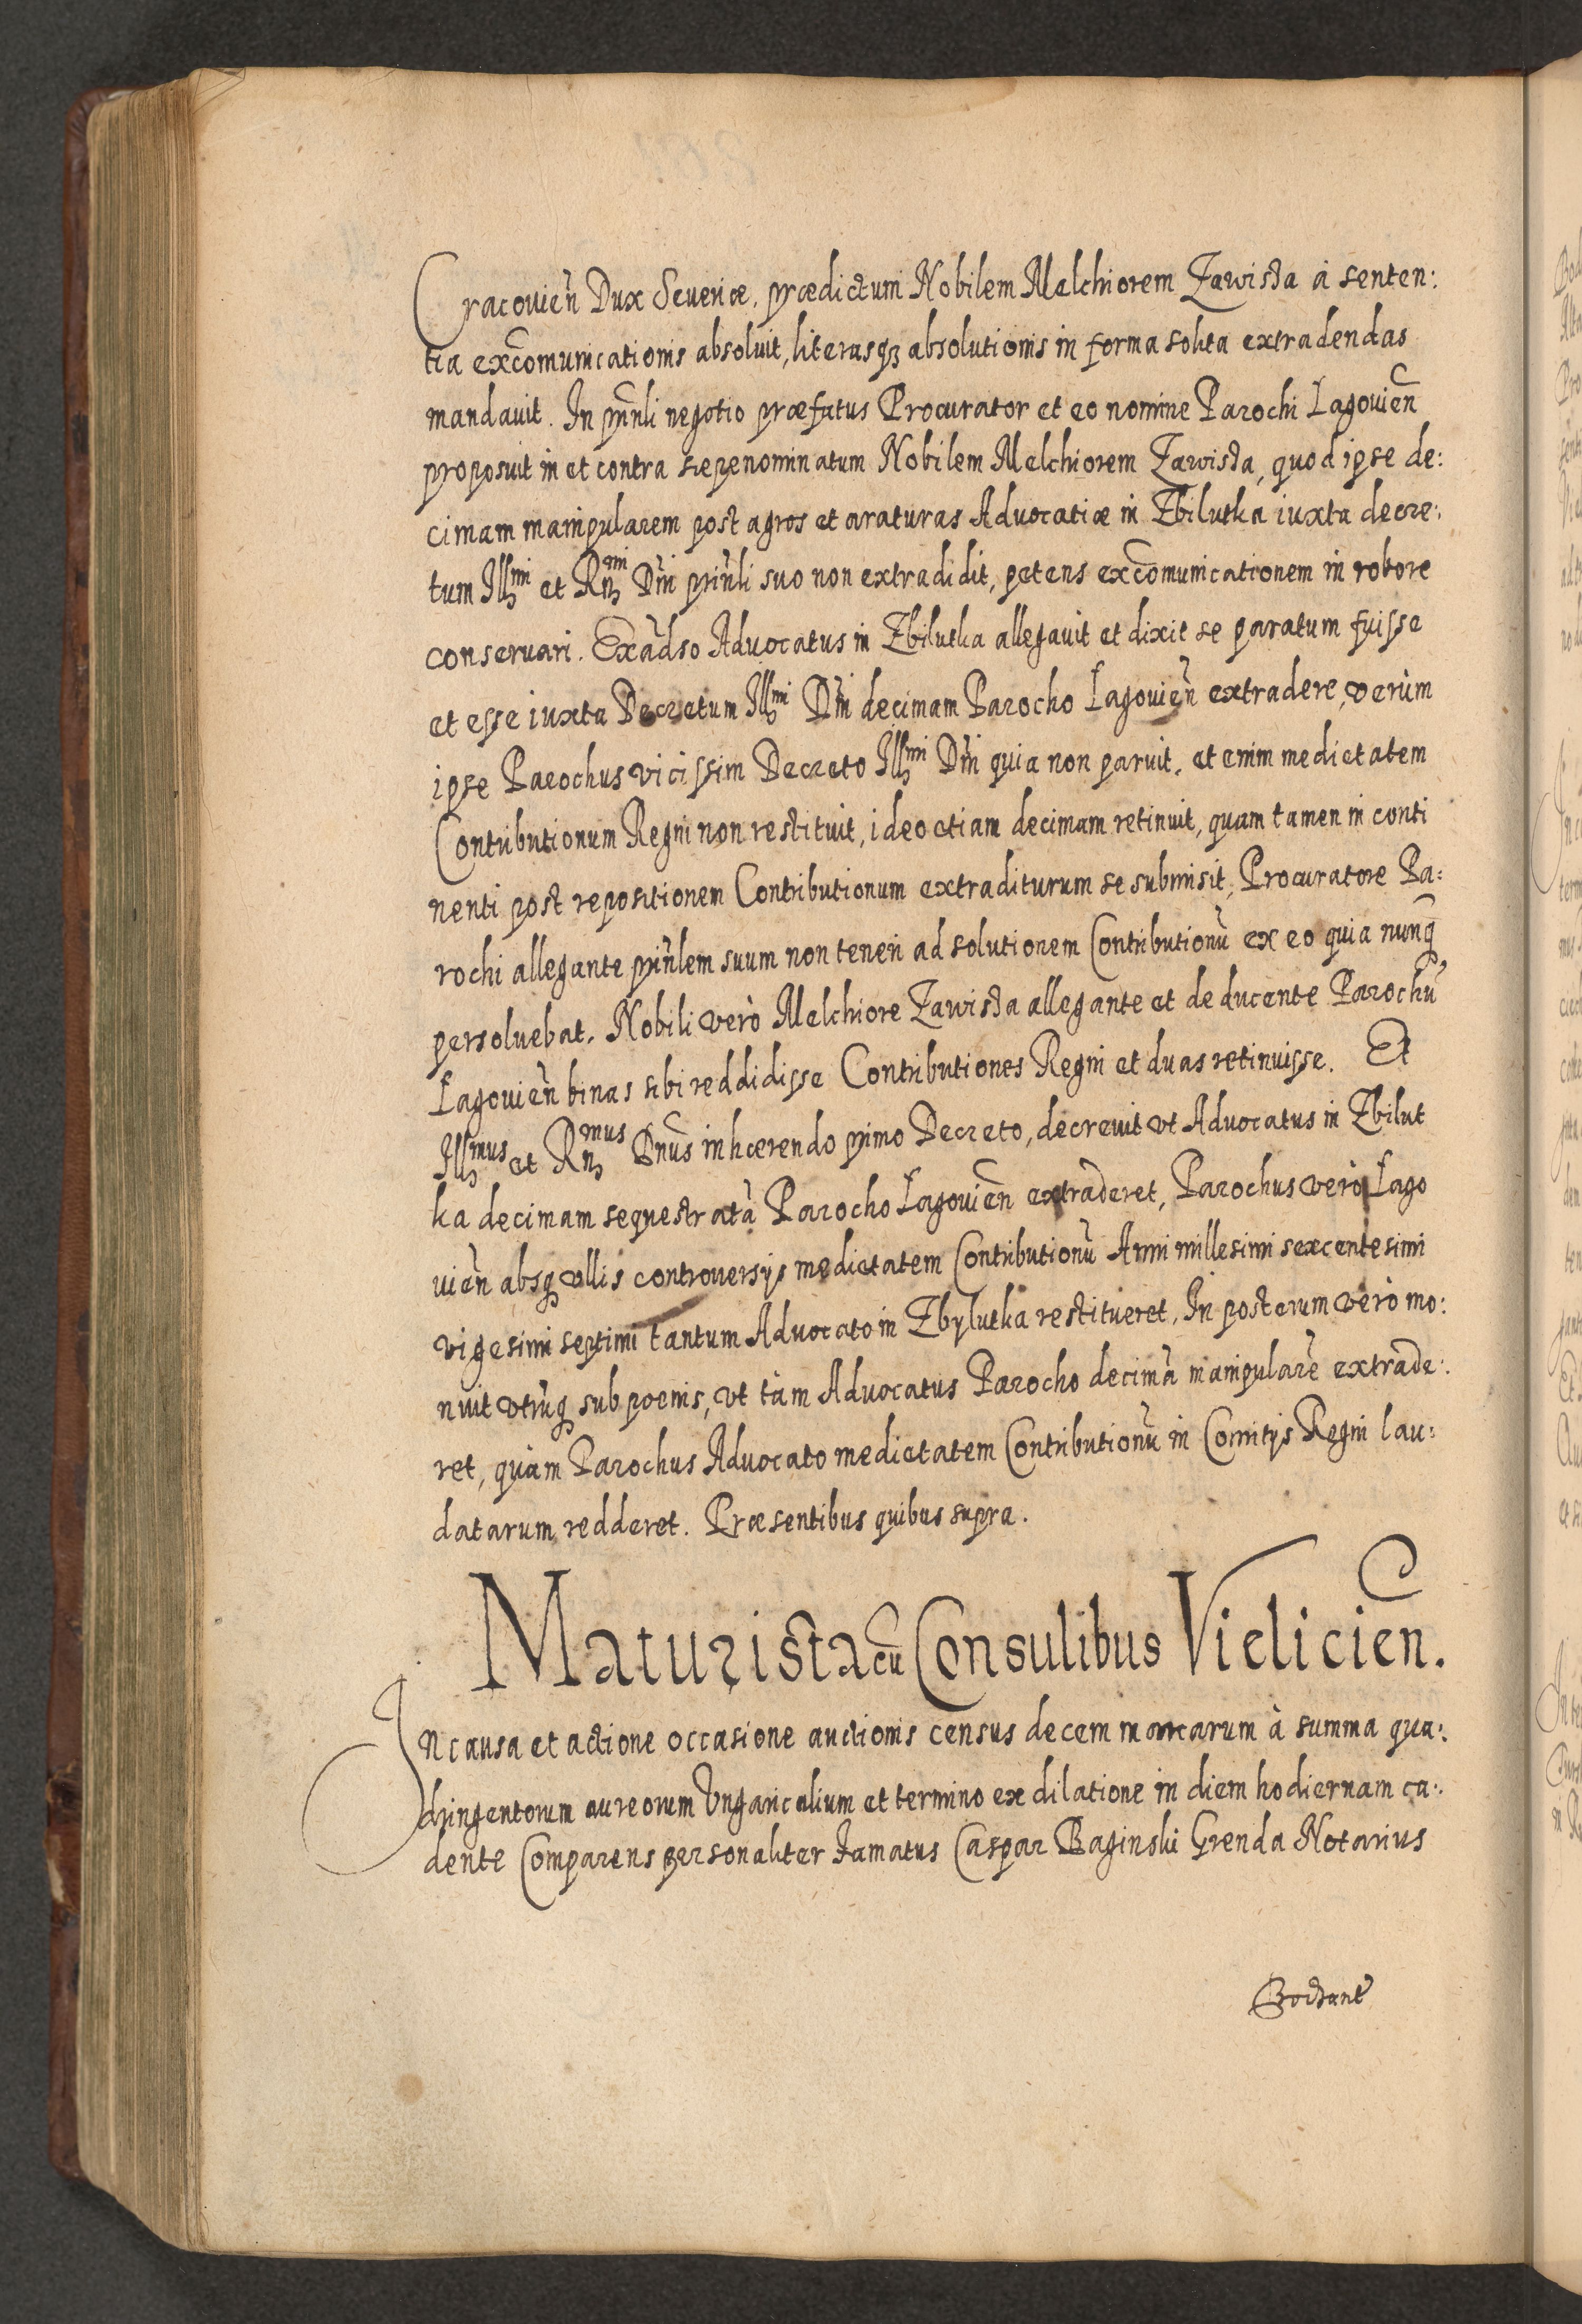 Cracouien̄ Dux Seueriæ, prædictum Nobilem Melchiorem Zawisza à senten:
tia excōmunicationis absoluit, literasqꝫ absolutionis in forma solita extradendas
mandauit. In pn̄ti negotio præfatus Procurator et eo nomine Parochi Lagouien̄
proposuit in et contra sæpenominatum Nobilem Melchiorem Zawisza, quod ipse de:
cimam manipularem post agros et araturas Advocatiæ in Zbilutka iuxta decre:
tum Illmi et Rñmi Dni prin̄li suo non extradidit, petens excōmunicationem in robore
conseruari. Exādso Advocatus in Zbilutka allegauit et dixit se paratum fuisse
et esse iuxta Decretum Illmi Dni decimam Parocho Lagouien̄ extradere, verùm
ipse Parochus vicissim Decreto Illmi Dni quia non paruit, et enim medietatem
Contributionum Regni non restituit, ideo etiam decimam retinuit, quam tamen in conti
nenti post repositionem Contributionum extraditurum se submisit, Procuratore Pa:
rochi allegante prin̄lem suum non teneri ad solutionem Contributionū ex eo quia nunq̄
persoluebat. Nobili verò Melchiore Zawisza allegante et deducente Parochū
Lagouien̄ binas sibi reddidisse Contributiones Regni et duas retinuisse. Et
Illmus et Rñmus Dnus inhærendo primo Decreto, decreuit vt Advocatus in Zbilut
ka decimam sequestratā Parocho Lagouien̄ extraderet, Parochus verò Lago
uien̄ absqꝫ vllis controuersijs medietatem Contributionū Anni millesimi sexcentesimi
vigesimi septimi tantum Advocato in Zbylutka restitueret, In posterum verò mo:
nuit vtrūqꝫ sub poenis, vt tàm Advocatus Parocho decimā manipularē extrade:
ret, quàm Parochus Advocato medietatem Contributionū in Comitijs Regni lau:
datarum redderet. Præsentibus quibus supra.
Maturista cū Consulibus Vielicien̄.
In causa et actione occasione auctionis census decem marcarum à summa qua:
dringentorum aureorum Vngaricalium et termino ex dilatione in diem hodiernam ca:
dente Comparens personaliter Famatus Caspar Baginski Grenda Notarius